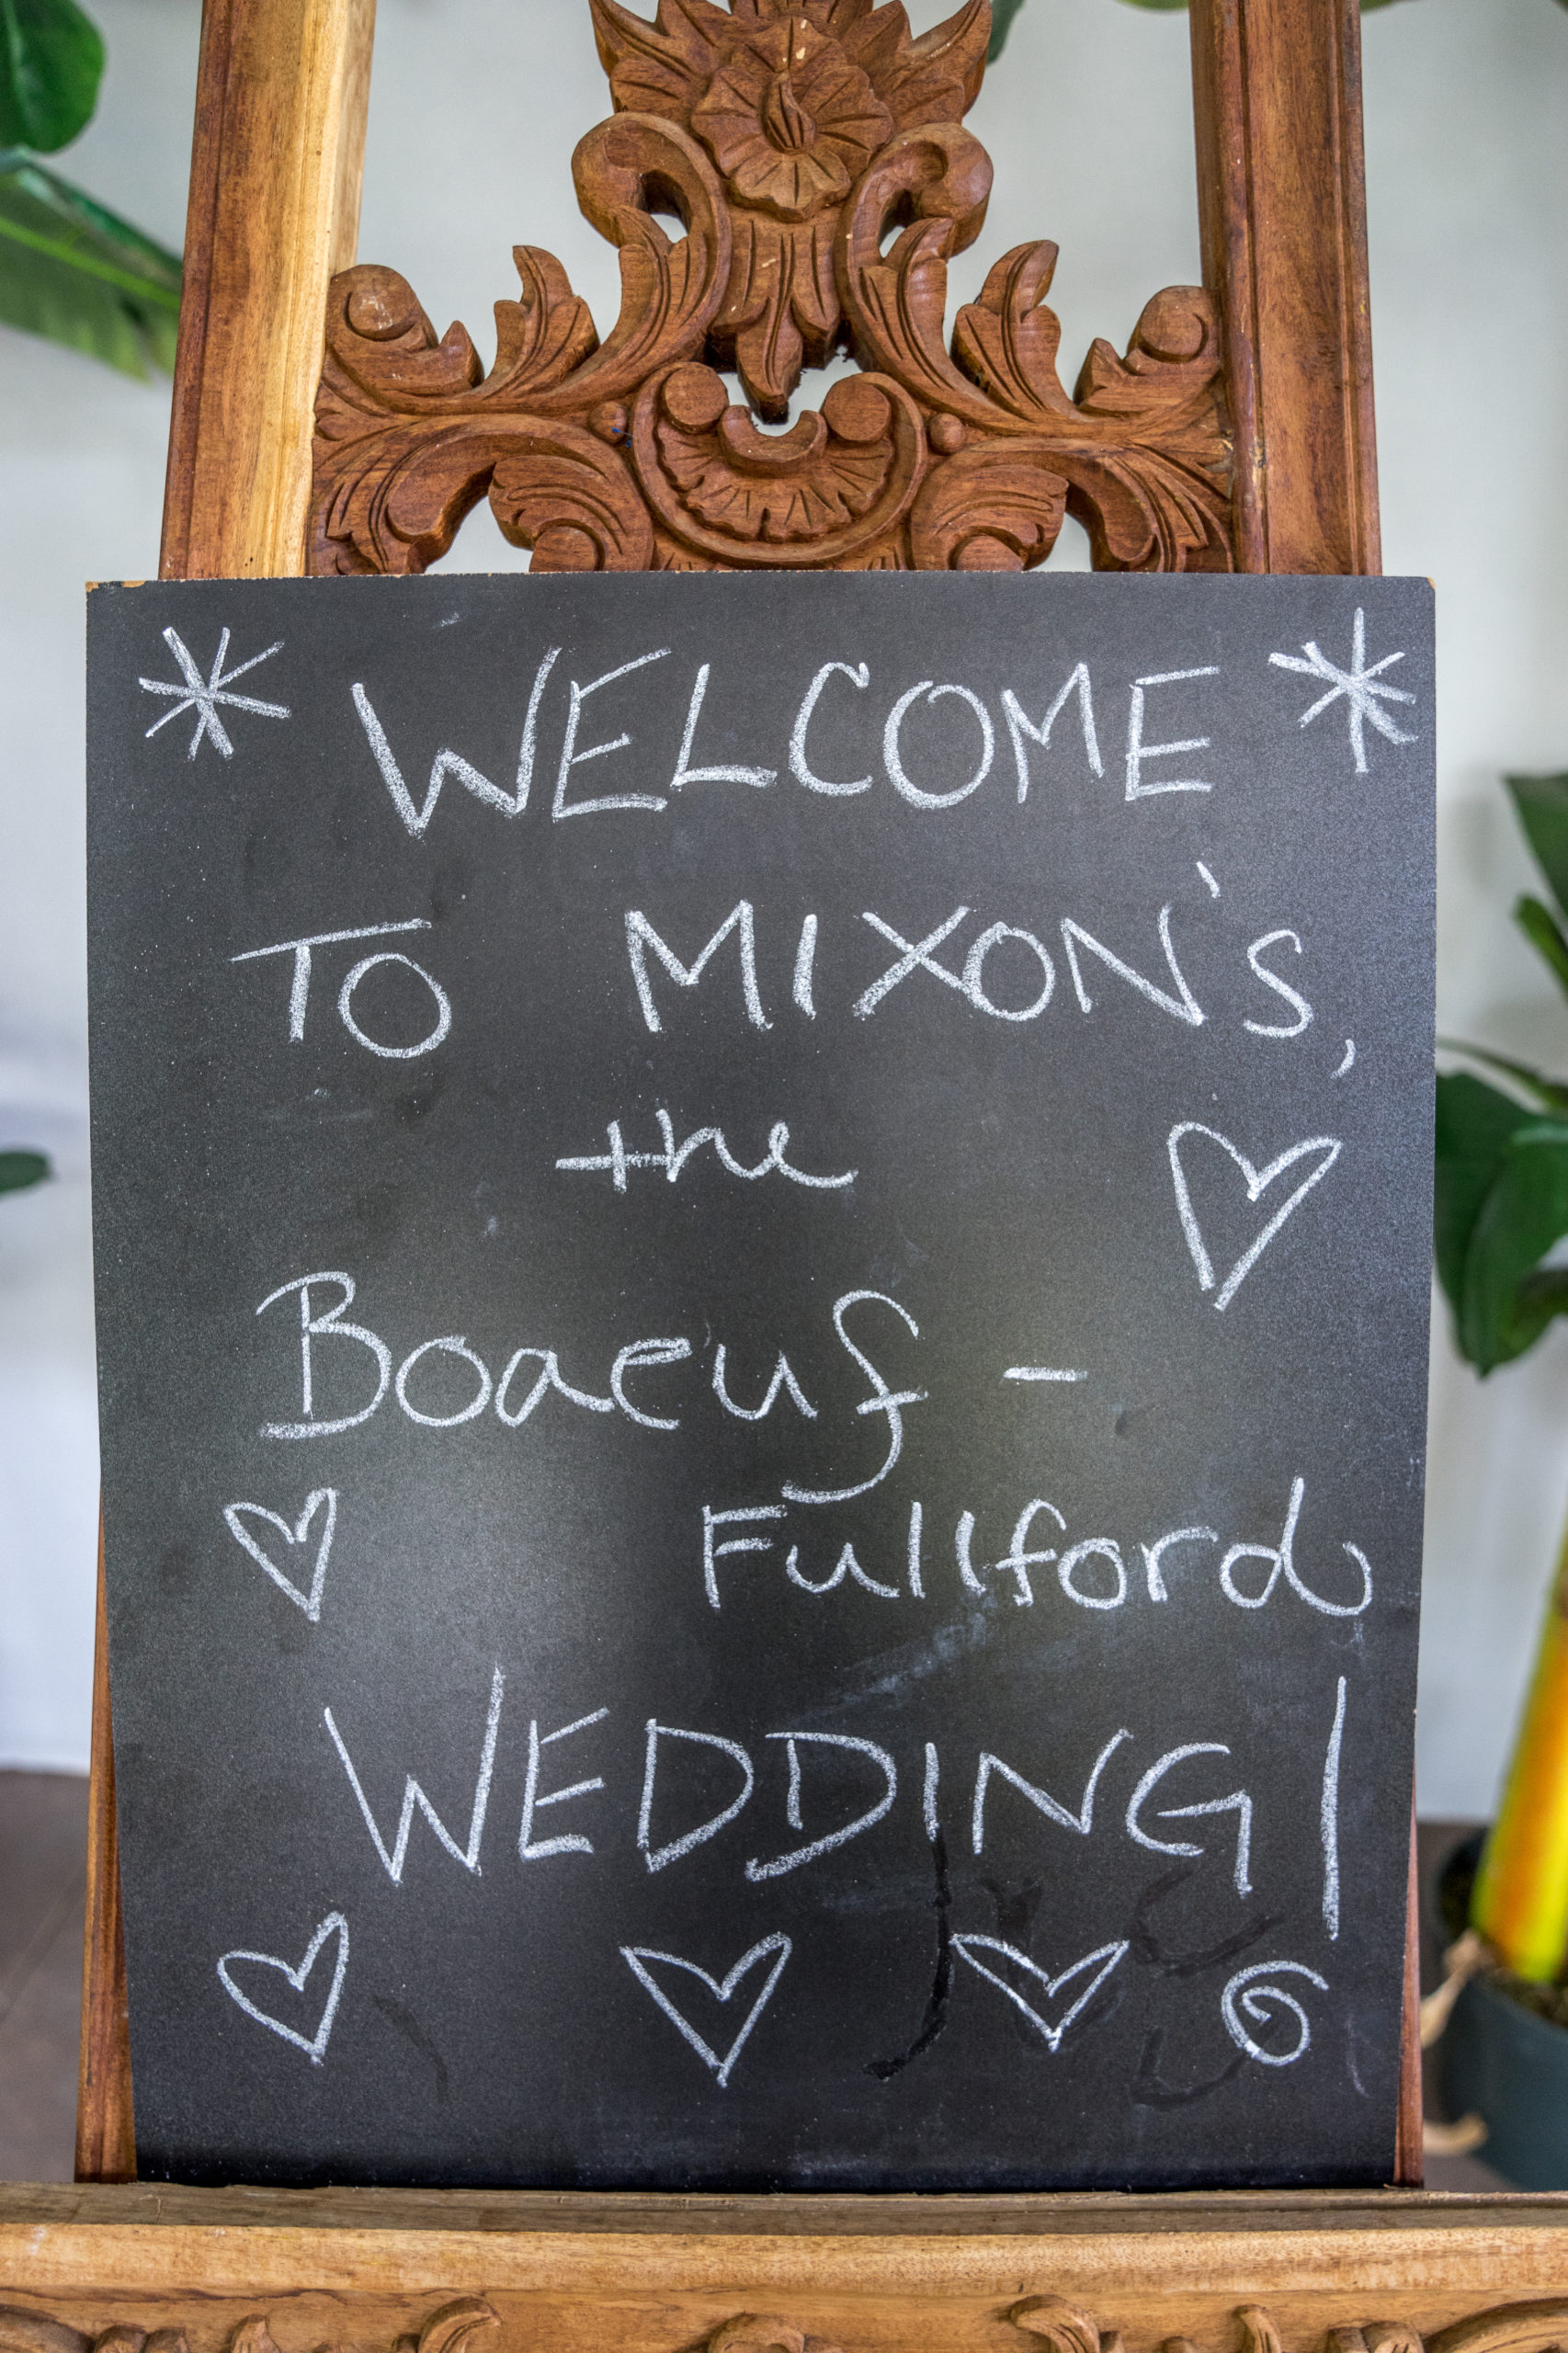 * WELCOME *
TO MIXON'S,
the
Boaeuf -
Fullford
WEDDING!